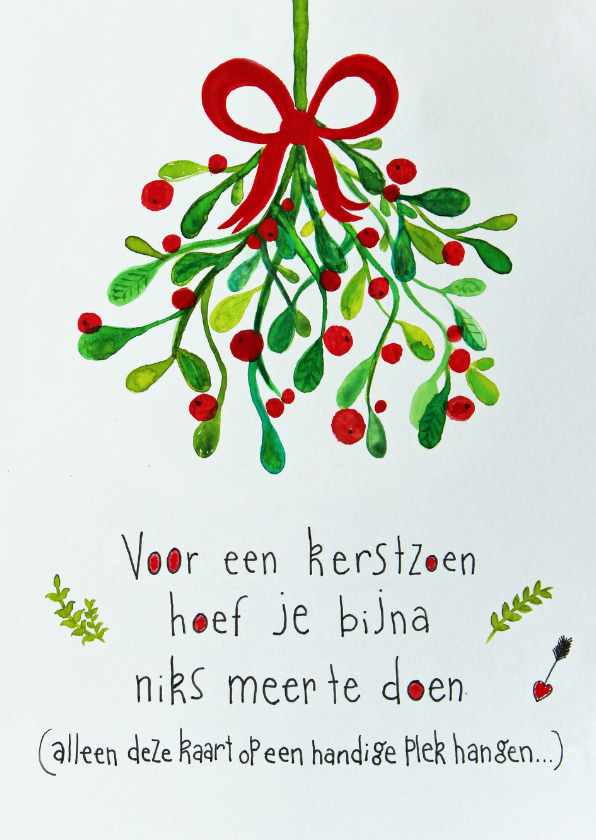 Voor een kerstzoen
hoef je bijna
niks meer te doen
(alleen deze kaart op een handige plek hangen...)